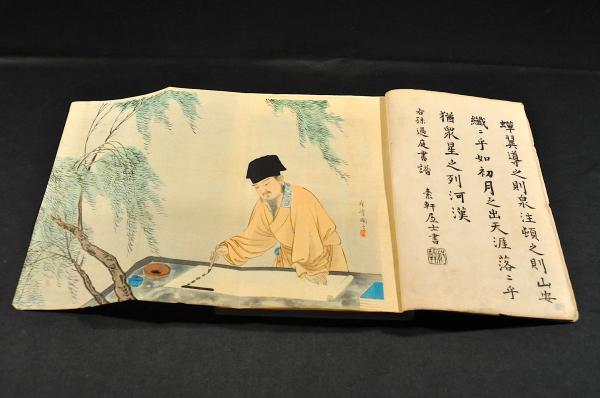 蟬翼導之則泉注頓之則山安
纖〻乎如初月之出天涯落〻乎
猶衆星之列河漢
右孫過庭書譜　素軒居士書